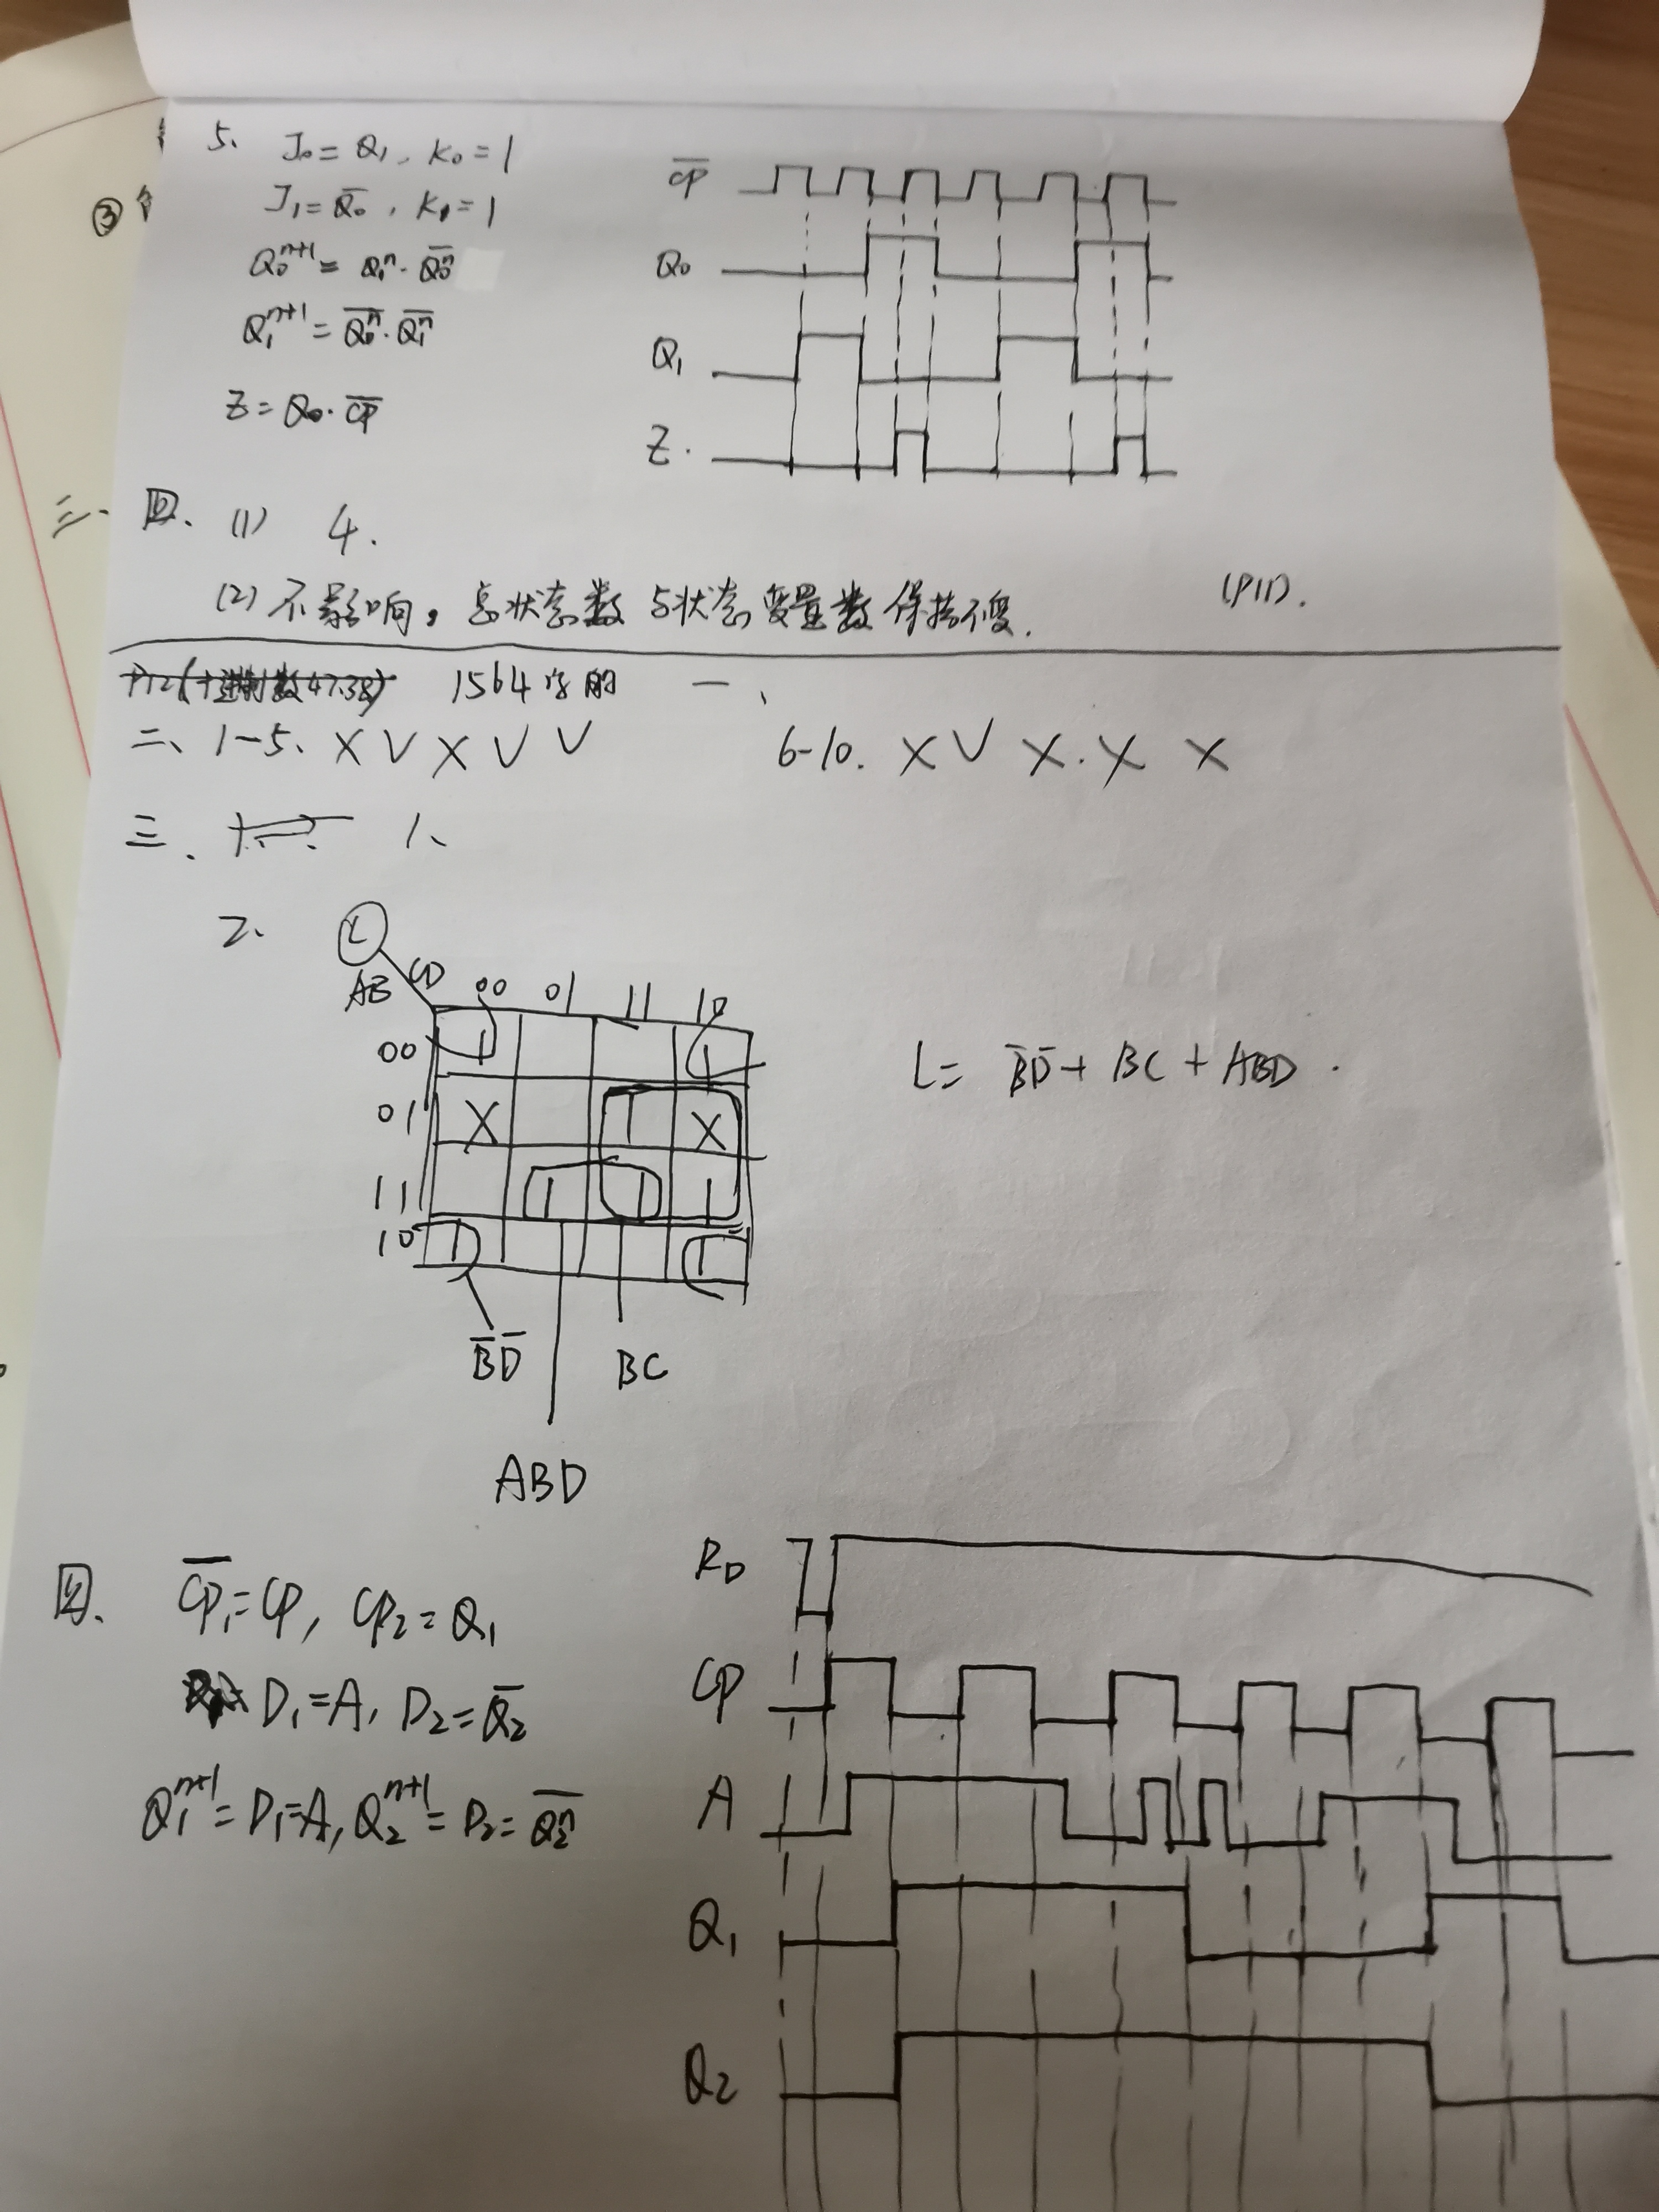 5、 J₀=Q₁、K₀=1
J₁=Q̅₀，K₁=1
Q₀ⁿ⁺¹=Q₁ⁿ·Q̅₀ⁿ
Q₁ⁿ⁺¹=Q̅₀ⁿ·Q̅₁ⁿ
Z=Q₀·C̅P̅
C̅P̅
Q₀
Q₁
Z.
③
三、四、(1) 4.
(2) 不影响。总状态数与状态变量数保持不变. (P11).
P12(十进制数47.38) 1564 一、
二、1-5、×√×√√ 6-10. ×√×.××
三、 1、
2、 L
AB CD 00 01 11 10
00 1 1
01 X 1 X
11 1 1 1
10 1 1
L= B̅D̅+BC+ABD.
B̅D̅ BC
ABD
四、 C̅P̅₁=CP, CP₂=Q₁
D₁=A, D₂=Q̅₂
Q₁ⁿ⁺¹=D₁=A, Q₂ⁿ⁺¹=D₂=Q̅₂ⁿ
R_D
CP
A
Q₁
Q₂